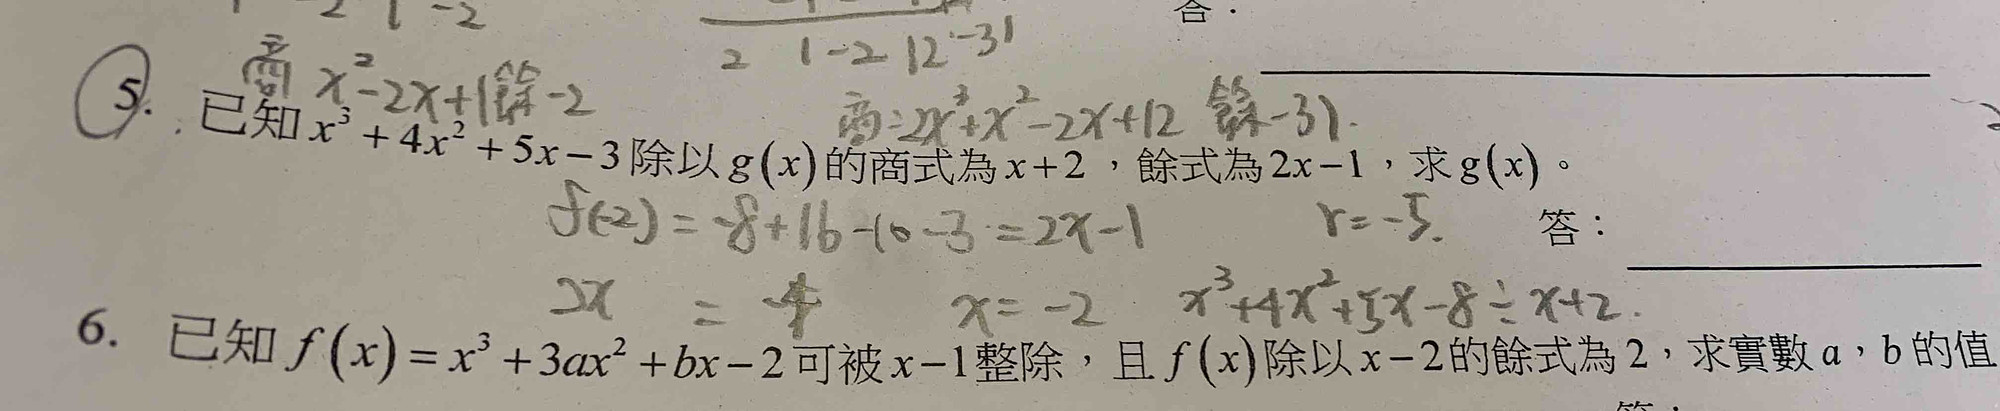 2 1 -2
2 1 -2 12 -31
答：
商 x²-2x+1 餘-2
商：2x³+x²-2x+12 餘-31.
5. 已知 x³+4x²+5x-3 除以 g(x) 的商式為 x+2，餘式為 2x-1，求 g(x)。
f(-2)=-8+16-10-3=2x-1 r=-5. 答：
2x = -4 x=-2 x³+4x²+5x-8÷x+2.
6. 已知 f(x)=x³+3ax²+bx-2 可被 x-1 整除，且 f(x) 除以 x-2 的餘式為 2，求實數 a，b 的值